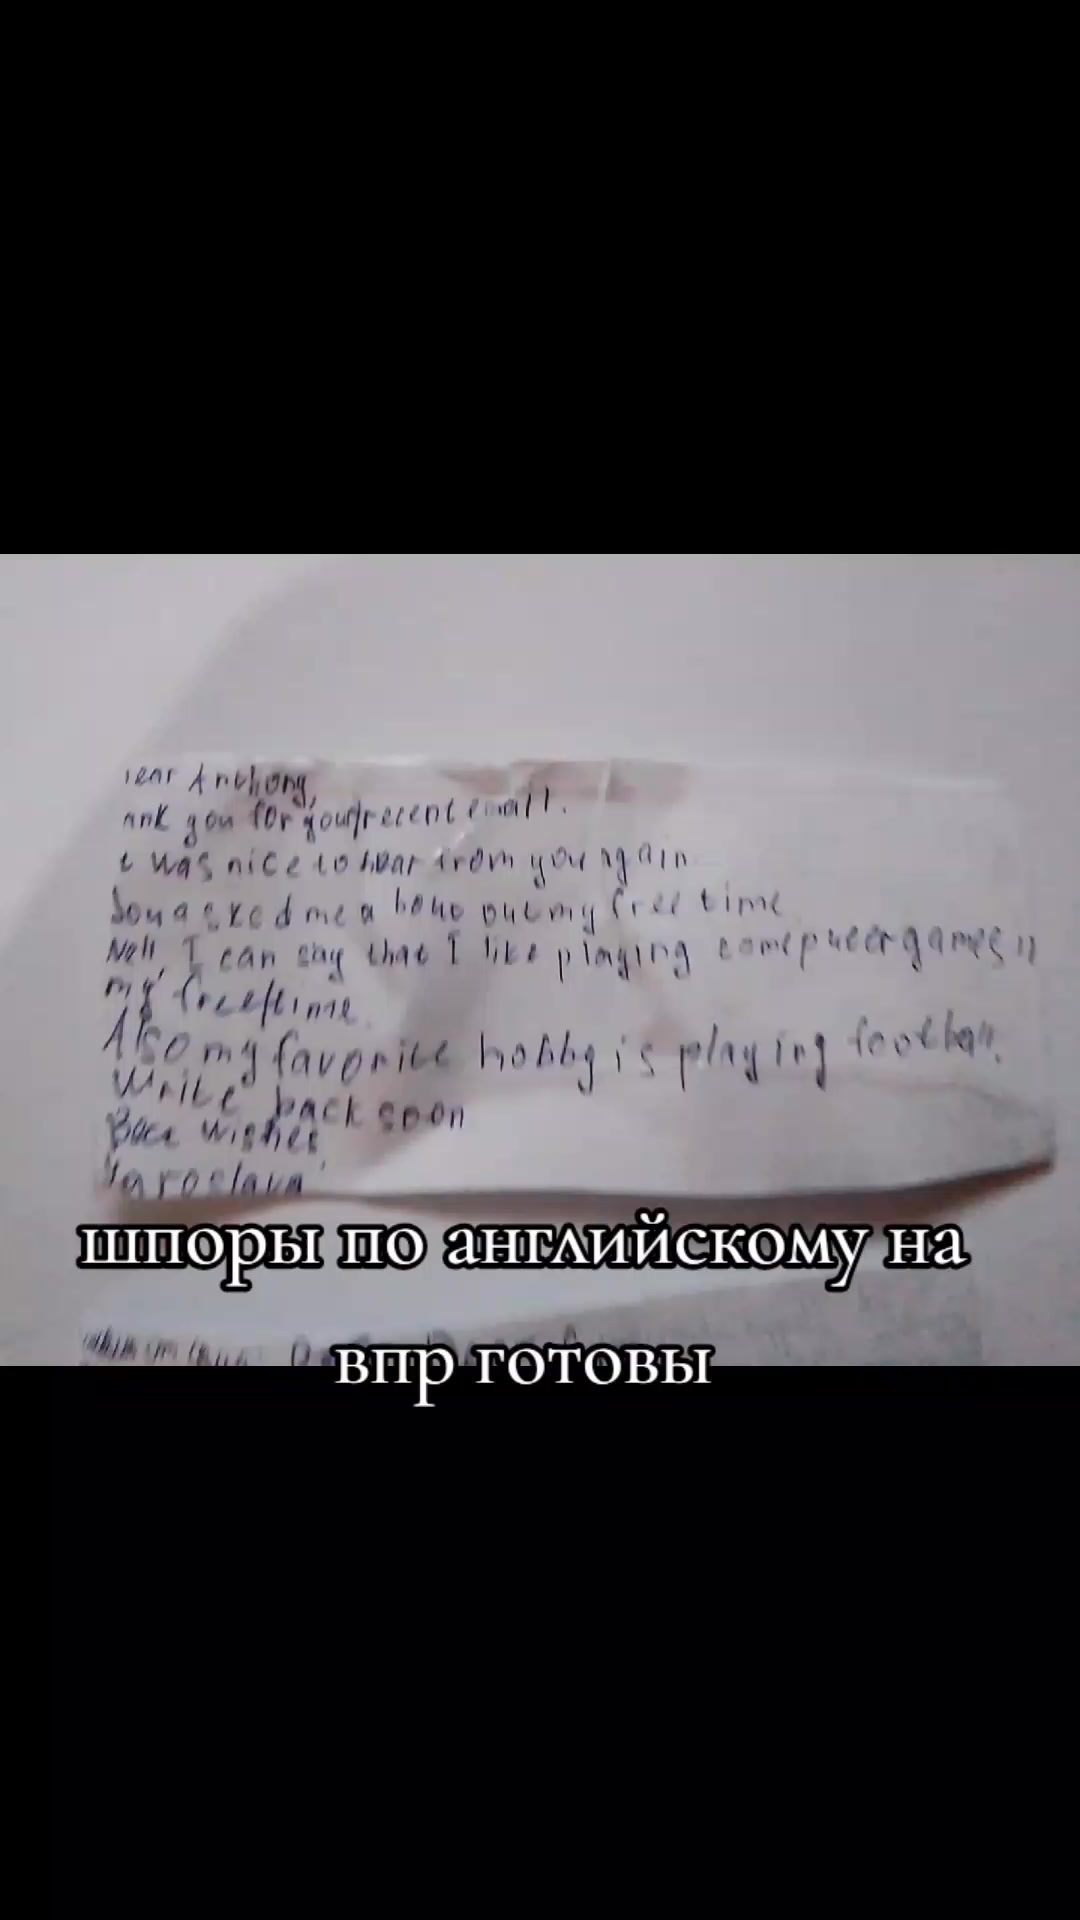 ear Anthony,
ank you for your recent email.
t was nice to hear from you again
you asked me a bout my free time
Well, I can say that I like playing games
my free time.
Also my favorite hobby is playing football.
Write back soon
Best wishes
Yaroslava
шпоры по английскому на
впр готовы